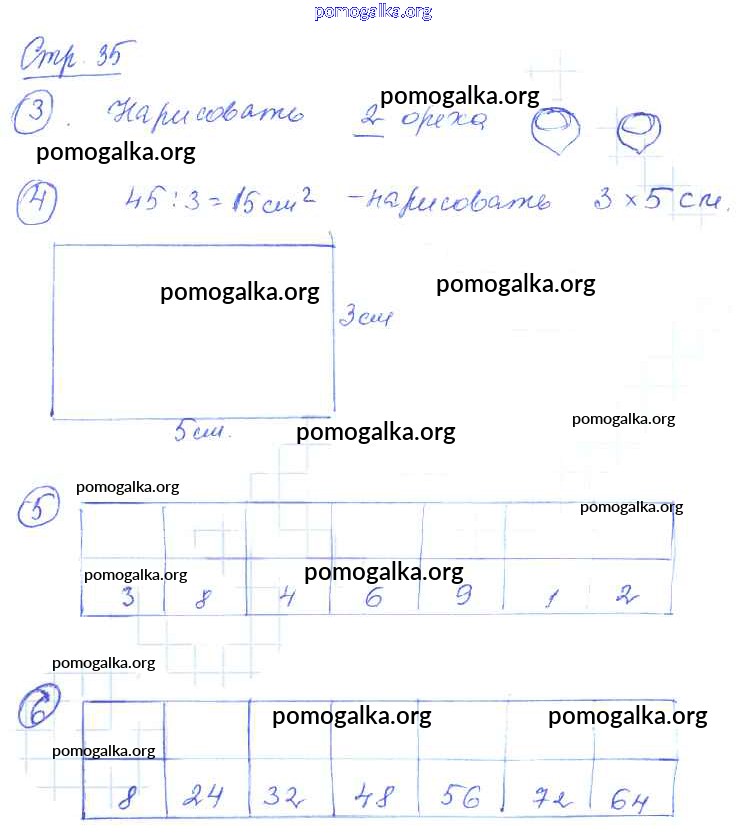 pomogalka.org
Стр. 35
pomogalka.org
3. Нарисовать 2 ореха
pomogalka.org
4 45 : 3 = 15 см² - нарисовать 3 × 5 см.
pomogalka.org pomogalka.org
3 см
pomogalka.org
5 см. pomogalka.org
pomogalka.org
5 pomogalka.org
pomogalka.org pomogalka.org
3 8 4 6 9 1 2
pomogalka.org
6 pomogalka.org pomogalka.org
pomogalka.org
8 24 32 48 56 72 64